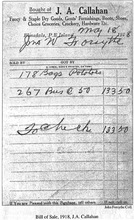 Bought of J. A. Callahan
Fancy & Staple Dry Goods, Gents' Furnishings, Boots, Shoes,
Choice Groceries, Crockery, Hardware Etc.
May 18
178 Bags Potatoes
267 Bus @ 50 133 50
To Check 133 50
Bill of Sale, 1918, J.A. Callahan